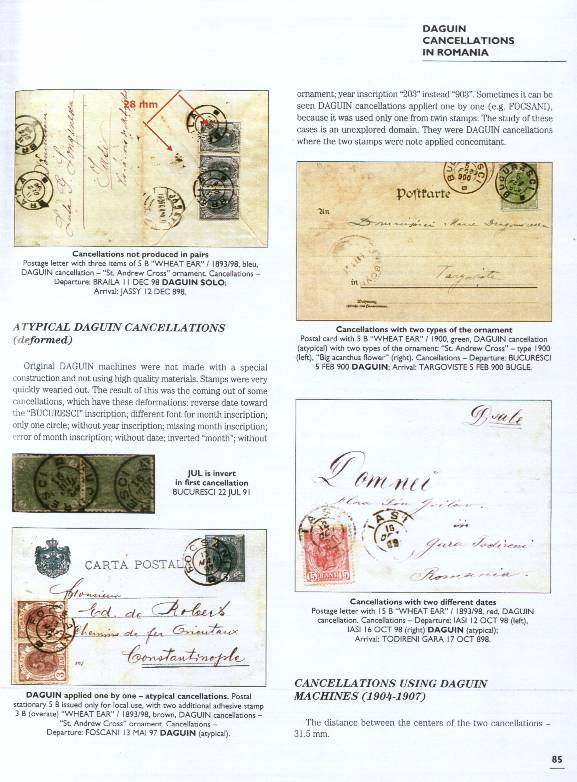 DAGUIN
CANCELLATIONS
IN ROMANIA
28 mm
Cancellations not produced in pairs
Postage letter with three items of 5 B "WHEAT EAR" / 1893/98, bleu,
DAGUIN cancellation – "St. Andrew Cross" ornament. Cancellations –
Departure: BRAILA 11 DEC 98 DAGUIN SOLO;
Arrival: JASSY 12 DEC 898.
ATYPICAL DAGUIN CANCELLATIONS
(deformed)
Original DAGUIN machines were not made with a special
construction and not using high quality materials. Stamps were very
quickly wearied out. The result of this was the coming out of some
cancellations, which have these deformations: reverse date toward
the "BUCURESCI" inscription; different font for month inscription;
only one circle; without year inscription; missing month inscription;
error of month inscription; without date; inverted "month"; without
JUL is invert
in first cancellation
BUCURESCI 22 JUL 91
CARTA POSTALA
Monsieur
Ed. de Robers
Chemins de fer Orientaux
Constantinople
DAGUIN applied one by one – atypical cancellations. Postal
stationary 5 B issued only for local use, with two additional adhesive stamp
3 B (overate) "WHEAT EAR" / 1893/98, brown, DAGUIN cancellations –
"St. Andrew Cross" ornament. Cancellations –
Departure: FOSCANI 13 MAI 97 DAGUIN (atypical).
ornament; year inscription "203" instead "903". Sometimes it can be
seen DAGUIN cancellations applied one by one (e.g. FOCSANI),
because it was used only one from twin stamps. The study of these
cases is an unexplored domain. They were DAGUIN cancellations
where the two stamps were note applied concomitant.
BUCURESCI
5 FEB 900
BUCURESCI
Postkarte
An
Targoviste
Cancellations with two types of the ornament
Postal card with 5 B "WHEAT EAR" / 1900, green, DAGUIN cancellation
(atypical) with two types of the ornament: "St. Andrew Cross" – type 1900
(left), "Big acanthus flower" (right). Cancellations – Departure: BUCURESCI
5 FEB 900 DAGUIN; Arrival: TARGOVISTE 5 FEB 900 BUGLE.
Domnei
in
Gara Todireni
Romania.
IASI
IASI
15 15
Cancellations with two different dates
Postage letter with 15 B "WHEAT EAR" / 1893/98, red, DAGUIN
cancellation. Cancellations – Departure: IASI 12 OCT 98 (left),
IASI 16 OCT 98 (right) DAGUIN (atypical);
Arrival: TODIRENI GARA 17 OCT 898.
CANCELLATIONS USING DAGUIN
MACHINES (1904-1907)
The distance between the centers of the two cancellations –
31.5 mm.
85